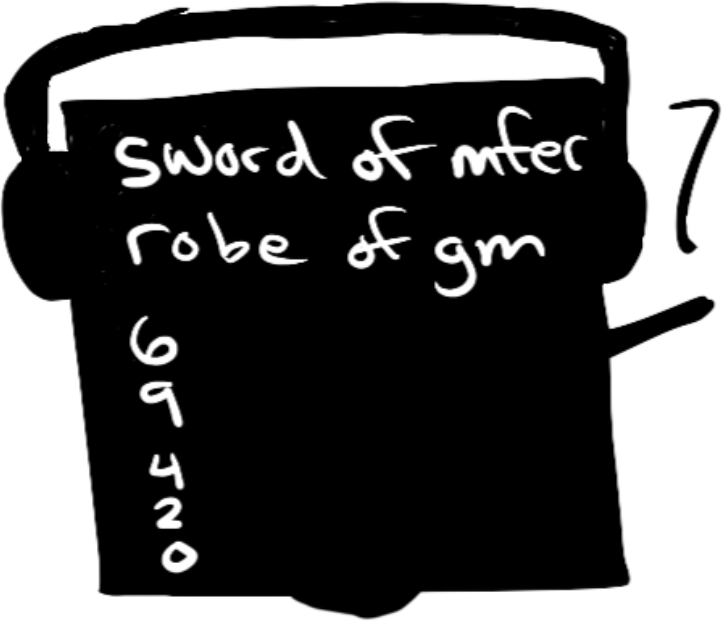 sword of mfer
robe of gm
6
9
4
2
0